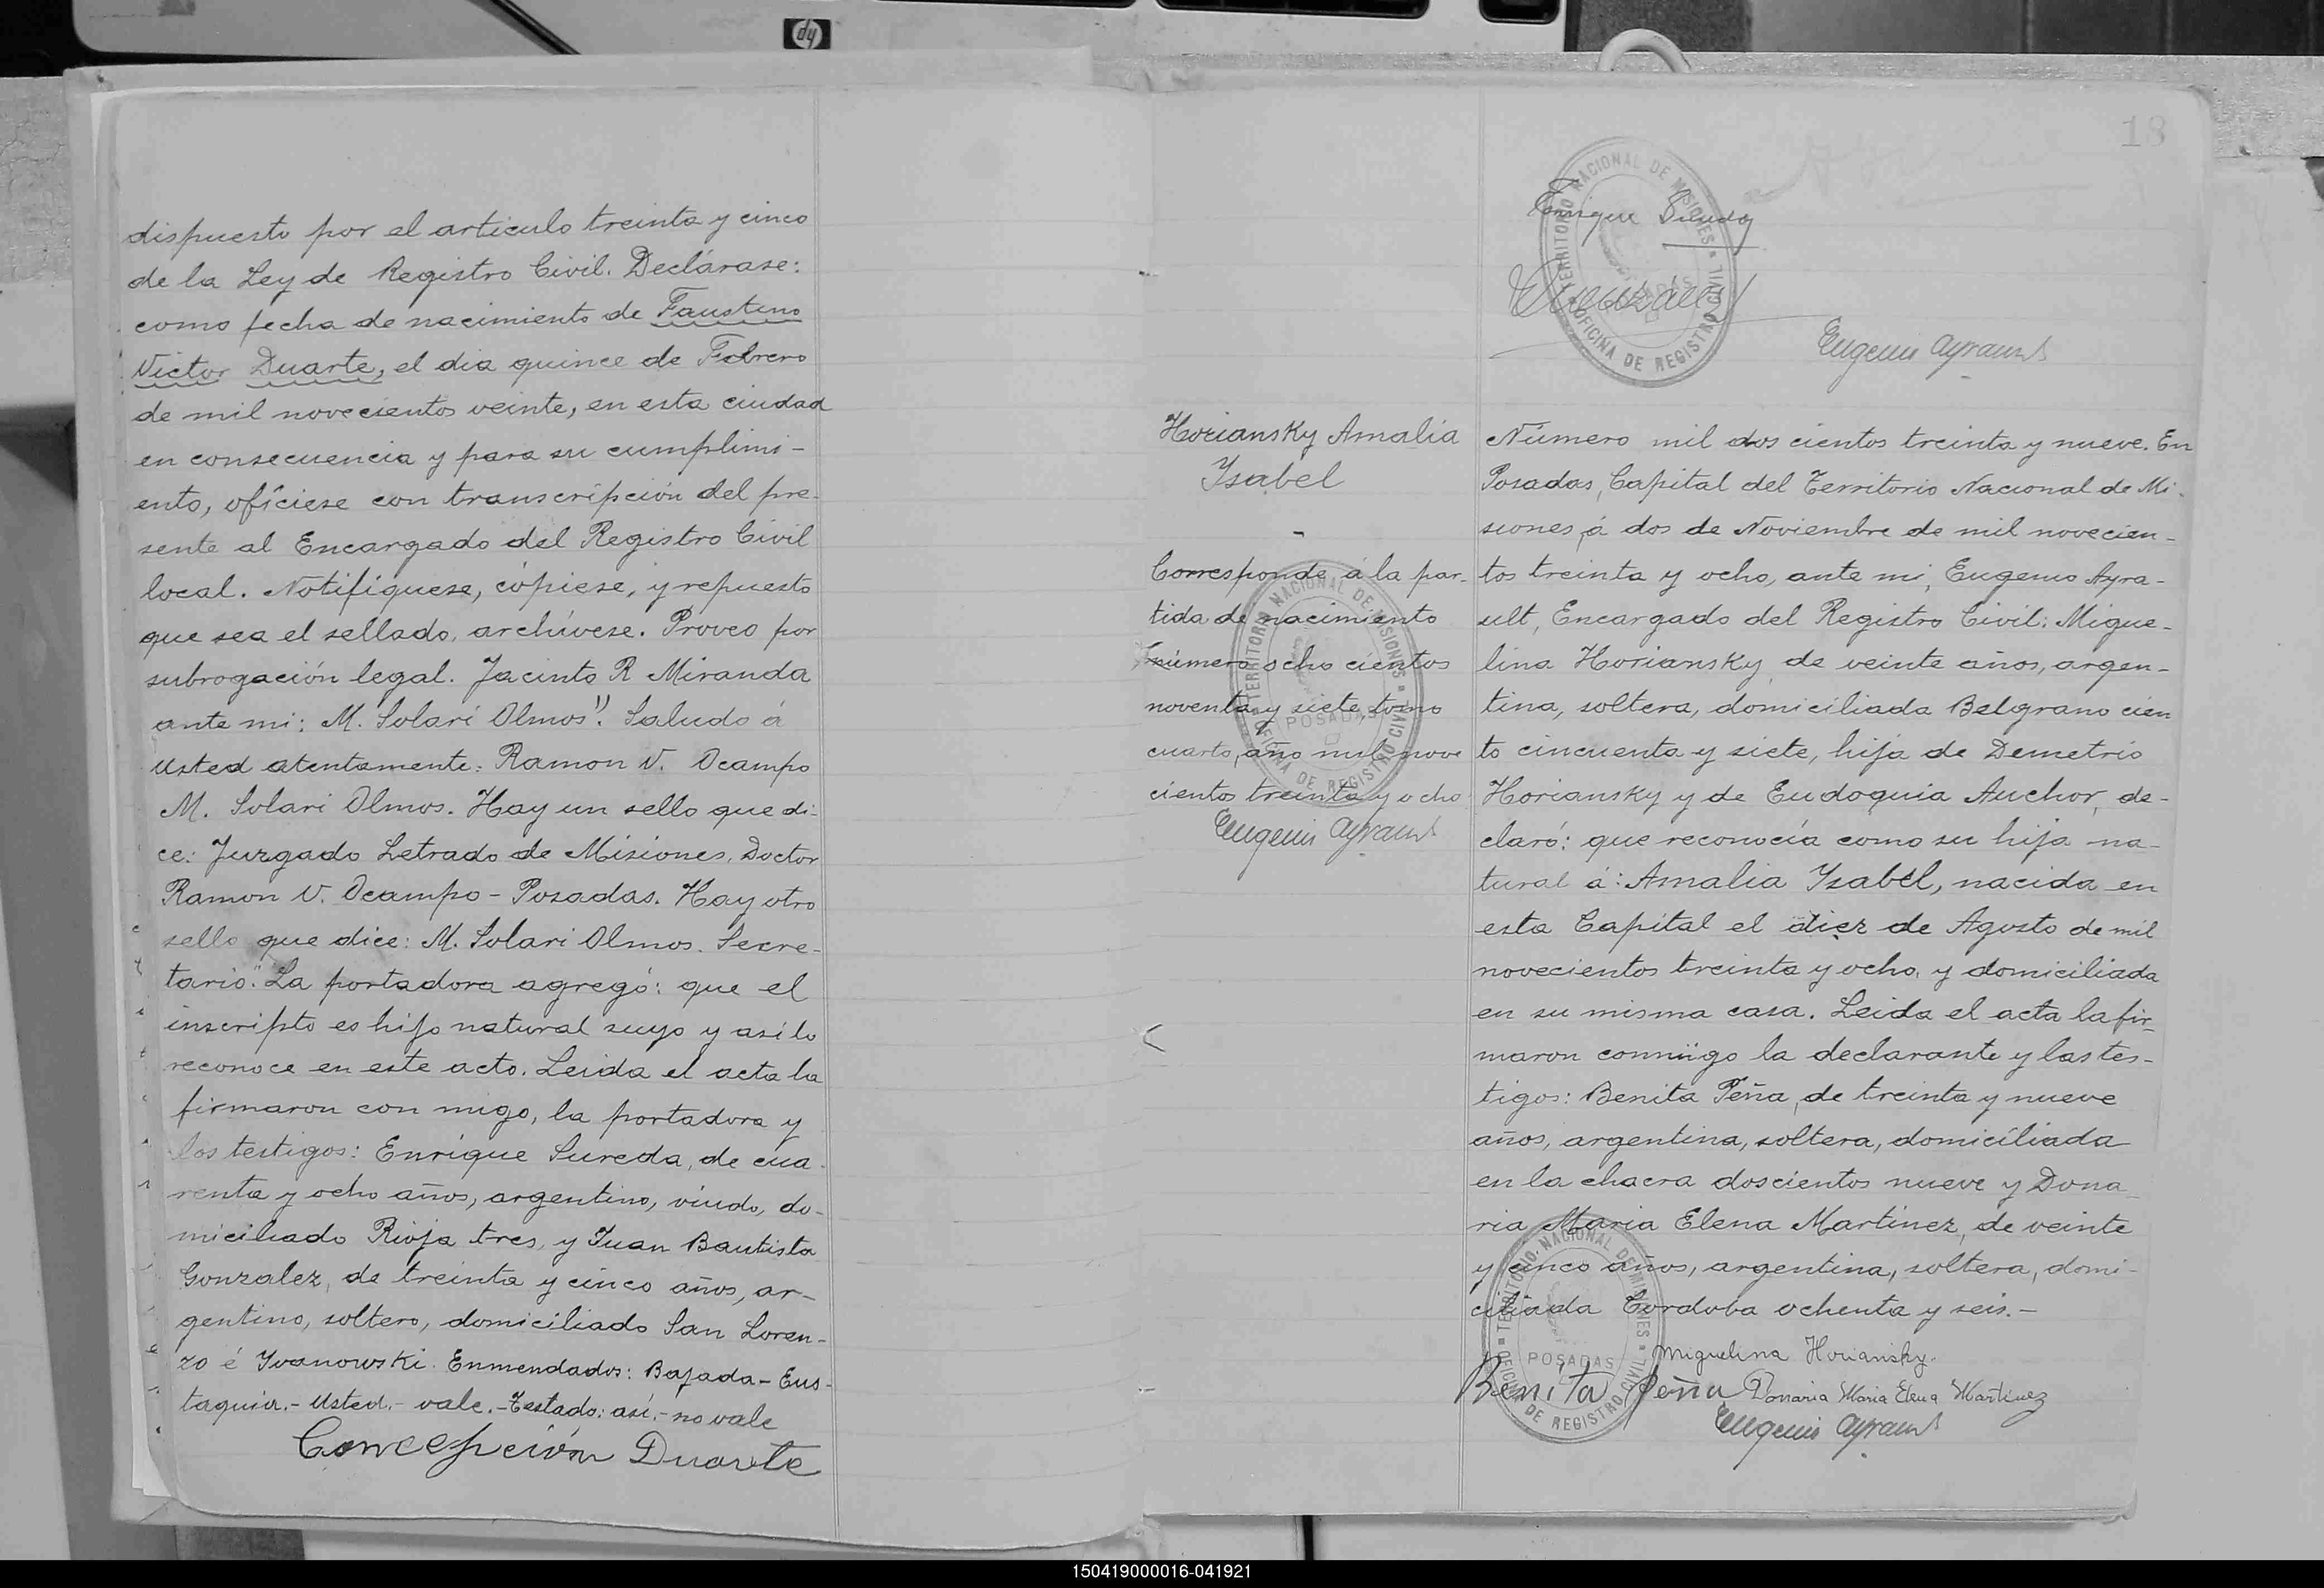 hp
dispuesto por el articulo treinta y cinco
de la Ley de Registro Civil. Declárase:
como fecha de nacimiento de Faustino
Victor Duarte, el dia quince de Febrero
de mil novecientos veinte, en esta ciudad
en consecuencia y para su cumplimi-
ento, ofíciese con transcripción del pre-
sente al Encargado del Registro Civil
local. Notifíquese, cópiese, y repuesto
que sea el sellado, archívese. Proveo por
subrogación legal. Jacinto R Miranda
ante mi: M. Solari Olmos". Saludo á
Usted atentamente: Ramon V. Ocampo
M. Solari Olmos. Hay un sello que di-
ce: Juzgado Letrado de Misiones, Doctor
Ramon V. Ocampo - Posadas. Hay otro
sello que dice: M. Solari Olmos. Secre-
tario". La portadora agregó: que el
inscripto es hijo natural suyo y asi lo
reconoce en este acto. Leida el acta la
firmaron con migo, la portadora y
los testigos: Enrique Sureda, de cua-
renta y ocho años, argentino, viudo, do-
miciliado Rioja tres, y Juan Bautista
Gonzalez, de treinta y cinco años, ar-
gentino, soltero, domiciliado San Loren-
zo é Yvanowski. Enmendados: Bajada - Eus-
taquia.- Usted.- vale.- Testado: asi.- no vale
Concepción Duarte
18
Enrique Sureda
TERRITORIO NACIONAL DE MISIONES
OFICINA DE REGISTRO CIVIL
POSADAS
Eugenio Ayrault
Horiansky Amalia
Ysabel
-
Corresponde á la par-
tida de nacimiento
número ocho cientos
noventa y siete, tomo
cuarto, año mil nove
cientos treinta y ocho
Eugenio Ayrault
TERRITORIO NACIONAL DE MISIONES
OFICINA DE REGISTRO CIVIL
POSADAS
Número mil dos cientos treinta y nueve. En
Posadas, Capital del Territorio Nacional de Mi-
siones, á dos de Noviembre de mil novecien-
tos treinta y ocho, ante mi, Eugenio Ayra-
ult, Encargado del Registro Civil: Migue-
lina Horiansky, de veinte años, argen-
tina, soltera, domiciliada Belgrano cien
to cincuenta y siete, hija de Demetrio
Horiansky y de Eudoquia Auchor, de-
claró: que reconocía como su hija na-
tural á: Amalia Ysabel, nacida en
esta Capital el diez de Agosto de mil
novecientos treinta y ocho, y domiciliada
en su misma casa. Leida el acta la fir-
maron conmigo la declarante y las tes-
tigos: Benita Peña, de treinta y nueve
años, argentina, soltera, domiciliada
en la chacra doscientos nueve y Dona-
ria Maria Elena Martinez, de veinte
y cinco años, argentina, soltera, domi-
ciliada Cordoba ochenta y seis.-
Miguelina Horiansky.
Benita Peña Donaria Maria Elena Martinez
Eugenio Ayrault
TERRITORIO NACIONAL DE MISIONES
OFICINA DE REGISTRO CIVIL
POSADAS
150419000016-041921